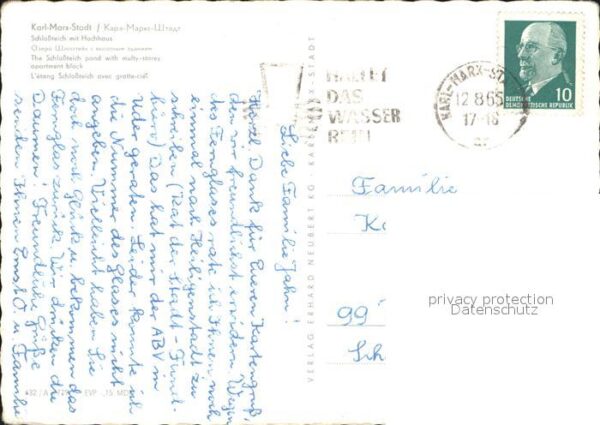 Karl-Marx-Stadt / Карл-Маркс-Штадт
Schloßteich mit Hochhaus
Озеро Шлосстейх с высотным зданием
The Schloßteich pond with multy-storey
apartment block
L'étang Schloßteich avec gratte-ciel
HALTET
DAS
WASSER
REIN
KARL-MARX-ST
12.8.65
17-18
10
DEUTSCHE
DEMOKRATISCHE REPUBLIK
Liebe Familie Jahn!
Herzl. Dank für Eueren Kartengruß,
den wir freundlichst erwidern. Wegen
des Fernglases rate ich Ihnen noch
einmal nach Heiligenstadt zu
schreiben (Rat der Stadt - Fund-
büro) Das hat mir der ABV in
Uder geraten. Leider konnte ich
die Nummer des Glases nicht
angeben. Vielleicht haben Sie
doch noch Glück u. bekommen das
Fernglas zurück. Wir drücken die
Daumen! Freundliche Grüße
senden Ihnen Ernst O u. Familie
VERLAG ERHARD NEUBERT KG, KARL-MARX-STADT
Familie
K
99
Sch
privacy protection
Datenschutz
EVP